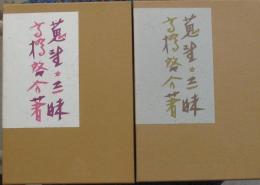 蒐集・三昧
高橋啓介著
蒐集・三昧
高橋啓介著